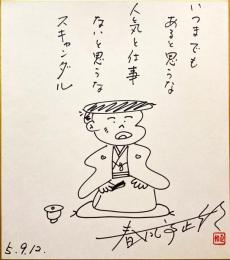 いつまでも
あると思うな
人気と仕事
ないと思うな
スキャンダル
春風亭正朝
5.9.12.